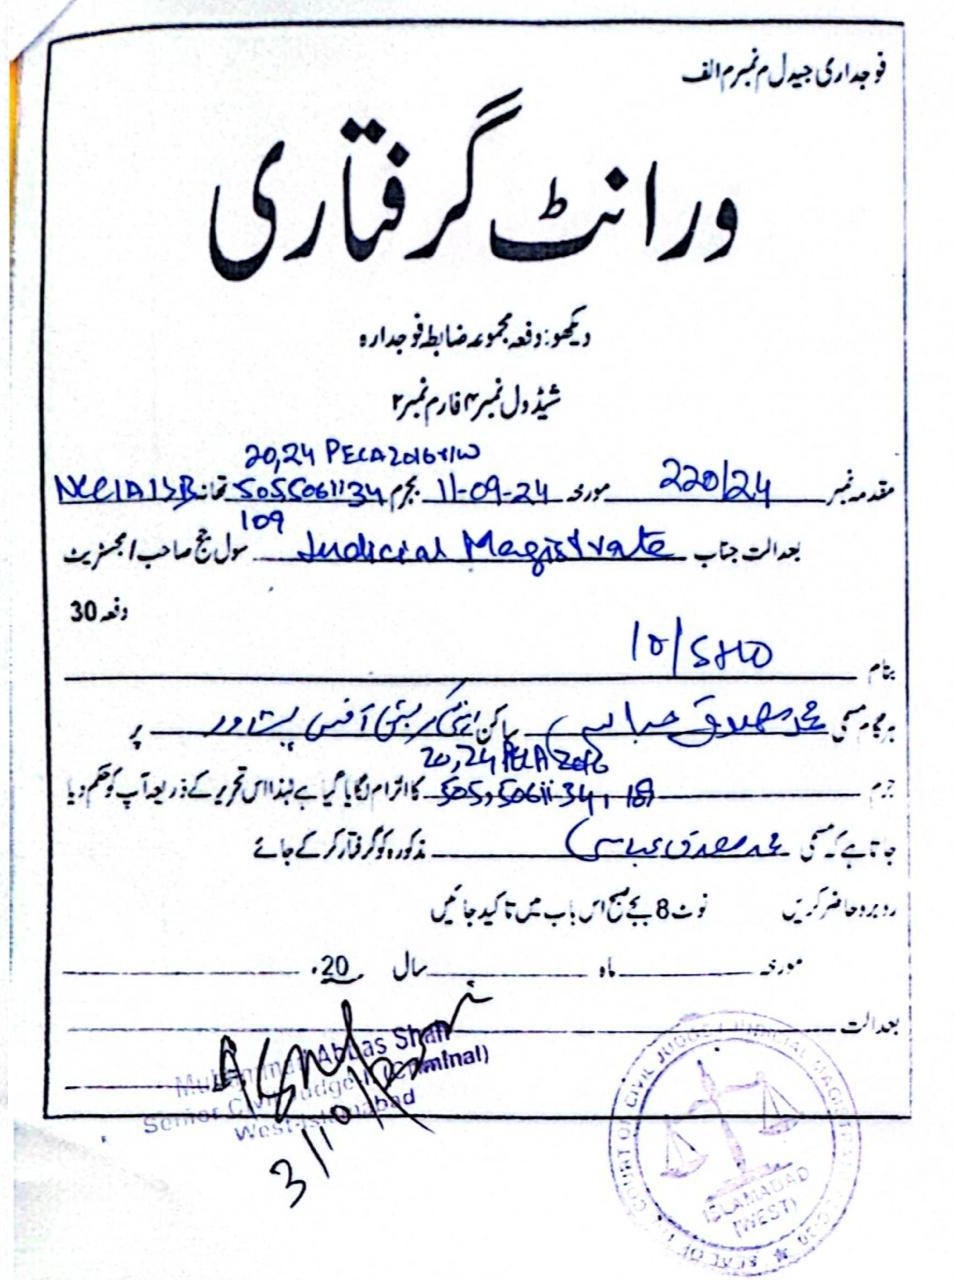 فوجداری جیدل م نمبر م الف
وارنٹ گرفتاری
دیکھو: دفعہ مجموعہ ضابطہ فوجدارہ
شیڈول نمبر ۴ فارم نمبر ۲
20,24 PECA 2016 r/w
مقدمہ نمبر 220/24 مورخہ 11-09-24 بجرم 505 506 II 34 تھانہ NCCIA ISB
109
بعدالت جناب Judicial Magistrate سول جج صاحب / مجسٹریٹ
دفعہ 30
بنام IO/SHO
ہرگاہ مسمی محمد مصدق عباسی ساکن اینٹی کرپشن آفس پشاور پر
20,24 PECA 2016
جرم 505, 506 II 34, 109 کا الزام لگایا گیا ہے لہذا اس تحریر کے ذریعہ آپ کو حکم دیا
جاتا ہے کہ مسمی محمد مصدق عباسی مذکورہ کو گرفتار کر کے جائے
روبرو حاضر کریں نوٹ 8 بجے صبح اس باب میں تاکید جانیں
مورخہ ماہ سال 20
بعدالت
Muhammad Abbas Shah
Senior Civil Judge-I (Criminal)
West-Islamabad
3/10
SEAL OF THE COURT OF CIVIL JUDGE JUDICIAL MAGISTRATE
ISLAMABAD
(WEST)